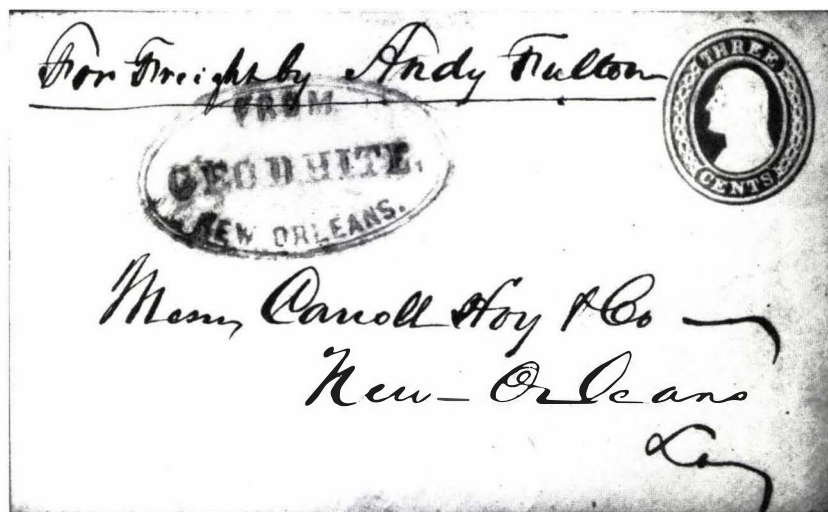 For Freight by Andy Fulton
THREE
CENTS
FROM
GEO D HITE,
NEW ORLEANS.
Messrs Carroll Hoy & Co
New-Orleans
La